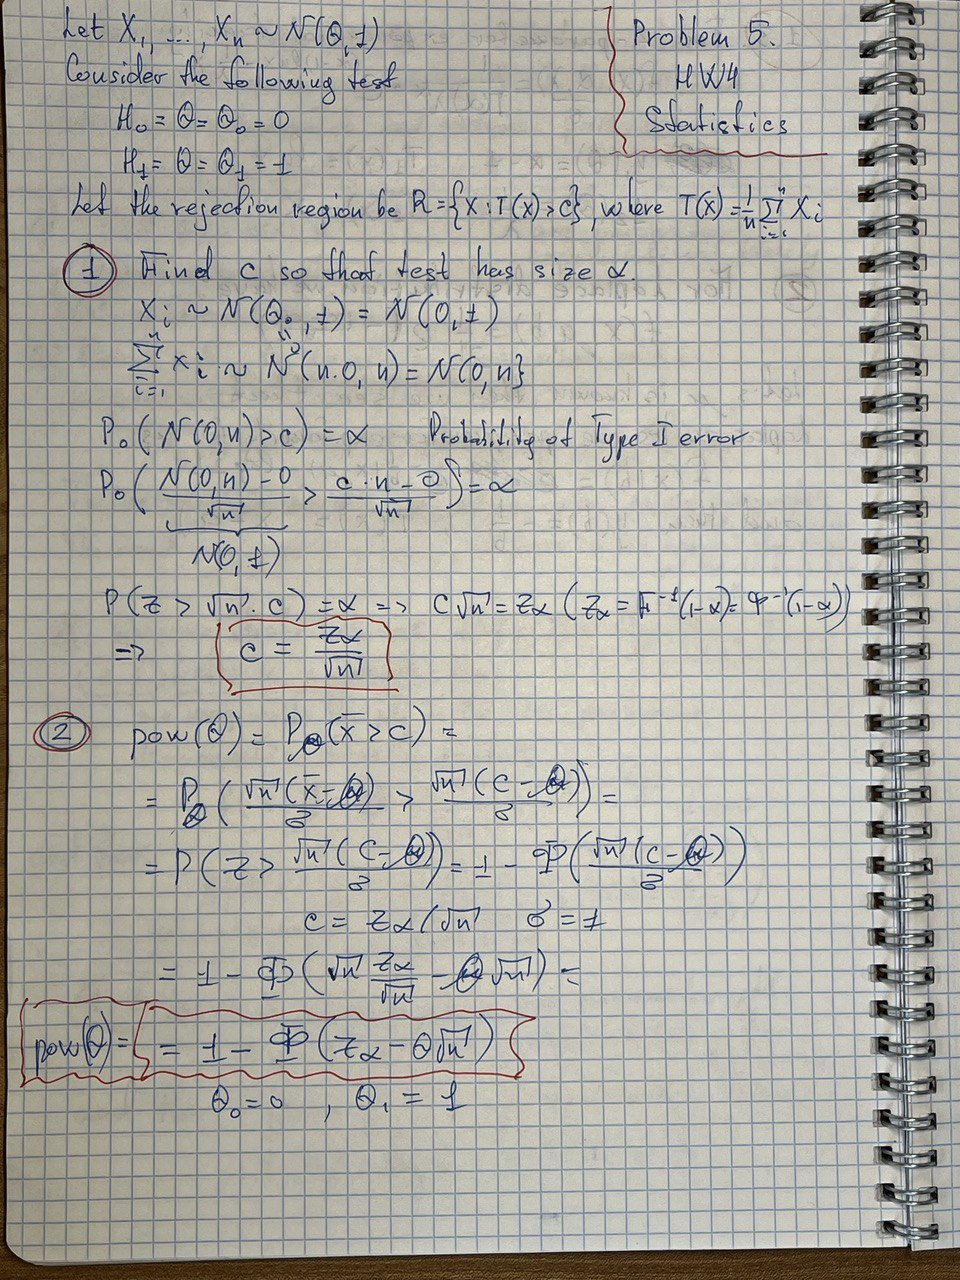 Let X₁, ..., Xₙ ~ N(θ, 1)
Consider the following test
H₀ = θ = θ₀ = 0
H₁ = θ = θ₁ = 1
Problem 5.
HW4
Statistics
Let the rejection region be R = {X : T(x) > c}, where T(x) = 1/n Σ_{i=1}^{n} Xᵢ
① Find c so that test has size α.
Xᵢ ~ N(θ₀, 1) = N(0, 1)
" 0
Σ_{i=1}^{n} Xᵢ ~ N(n·0, n) = N(0, n}
P₀(N(0, n) > c) = α Probability of Type I error
P₀( (N(0, n) - 0)/√n > (c·n - 0)/√n ) = α
N(0, 1)
P(Z > √n · c) = α => c√n = Zα (Zα = F⁻¹(1-α) = Φ⁻¹(1-α))
=> c = Zα/√n
② pow(θ) = P_θ(x̄ > c) =
= P_θ( √n(x̄ - θ)/σ > √n(c - θ)/σ ) =
= P(Z > √n(c - θ)/σ) = 1 - Φ( √n(c - θ)/σ )
c = Zα/√n σ = 1
= 1 - Φ(√n Zα/√n - θ√n) =
pow(θ) = = 1 - Φ(Zα - θ√n)
θ₀ = 0 , θ₁ = 1